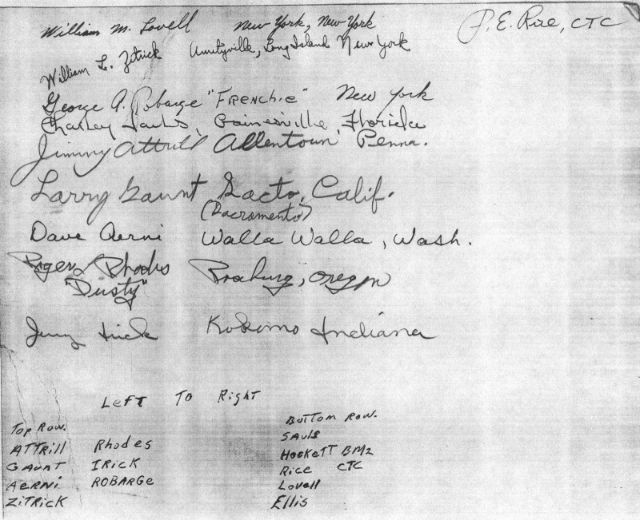 William M. Lovell New York, New York
P. E. Rice, CTC
William L. Zitrick Amityville, Long Island New York
George A. Robarge "Frenchie" New York
Charley Sauls, Gainesville, Florida
Jimmy Attrill Allentown Penna.
Larry Gaunt Sacto, Calif.
(Sacramento)
Dave Aerni Walla Walla, Wash.
Roger Rhodes Roseburg, Oregon
"Dusty"
Jerry Irick Kokomo Indiana
Left To Right
Top Row. Bottom Row.
ATTRill Rhodes Sauls
GAUNT IRICK Hockett BM2
AERNI ROBARGE Rice CTC
ZITRICK Lovell
Ellis